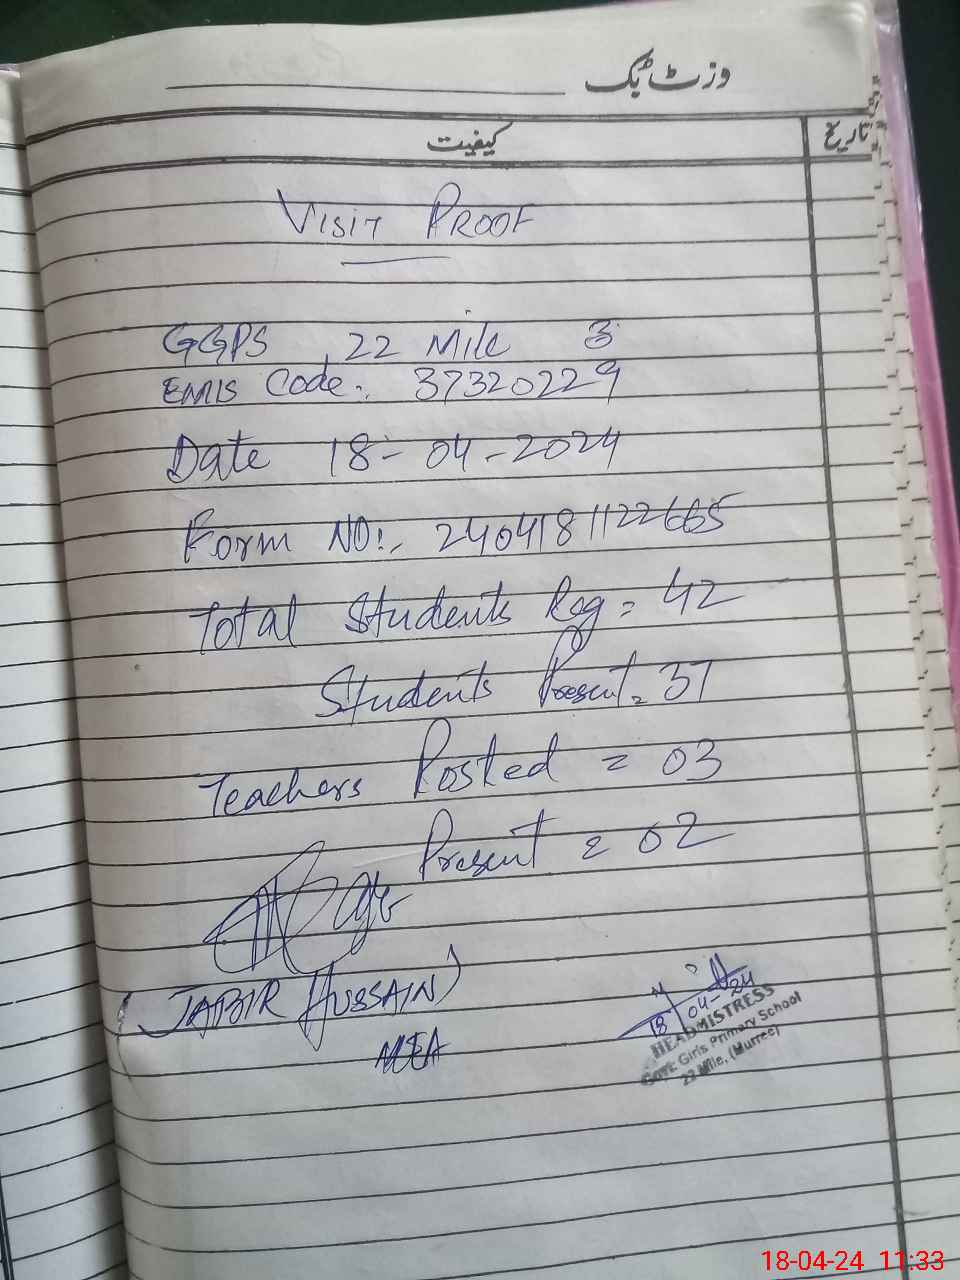 وزٹ بک
کیفیت
تاریخ
VISIT PROOF
GGPS, 22 Mile 3
EMIS Code:. 37320229
Date 18-04-2024
Form NO:. 2404181122665
Total Students Reg = 42
Students Present = 37
Teachers Posted = 03
Present = 02
(JABIR HUSSAIN)
MEA
18/04-24
HEADMISTRESS
Govt: Girls Primary School
22 Mile, (Murree)
18-04-24 11:33